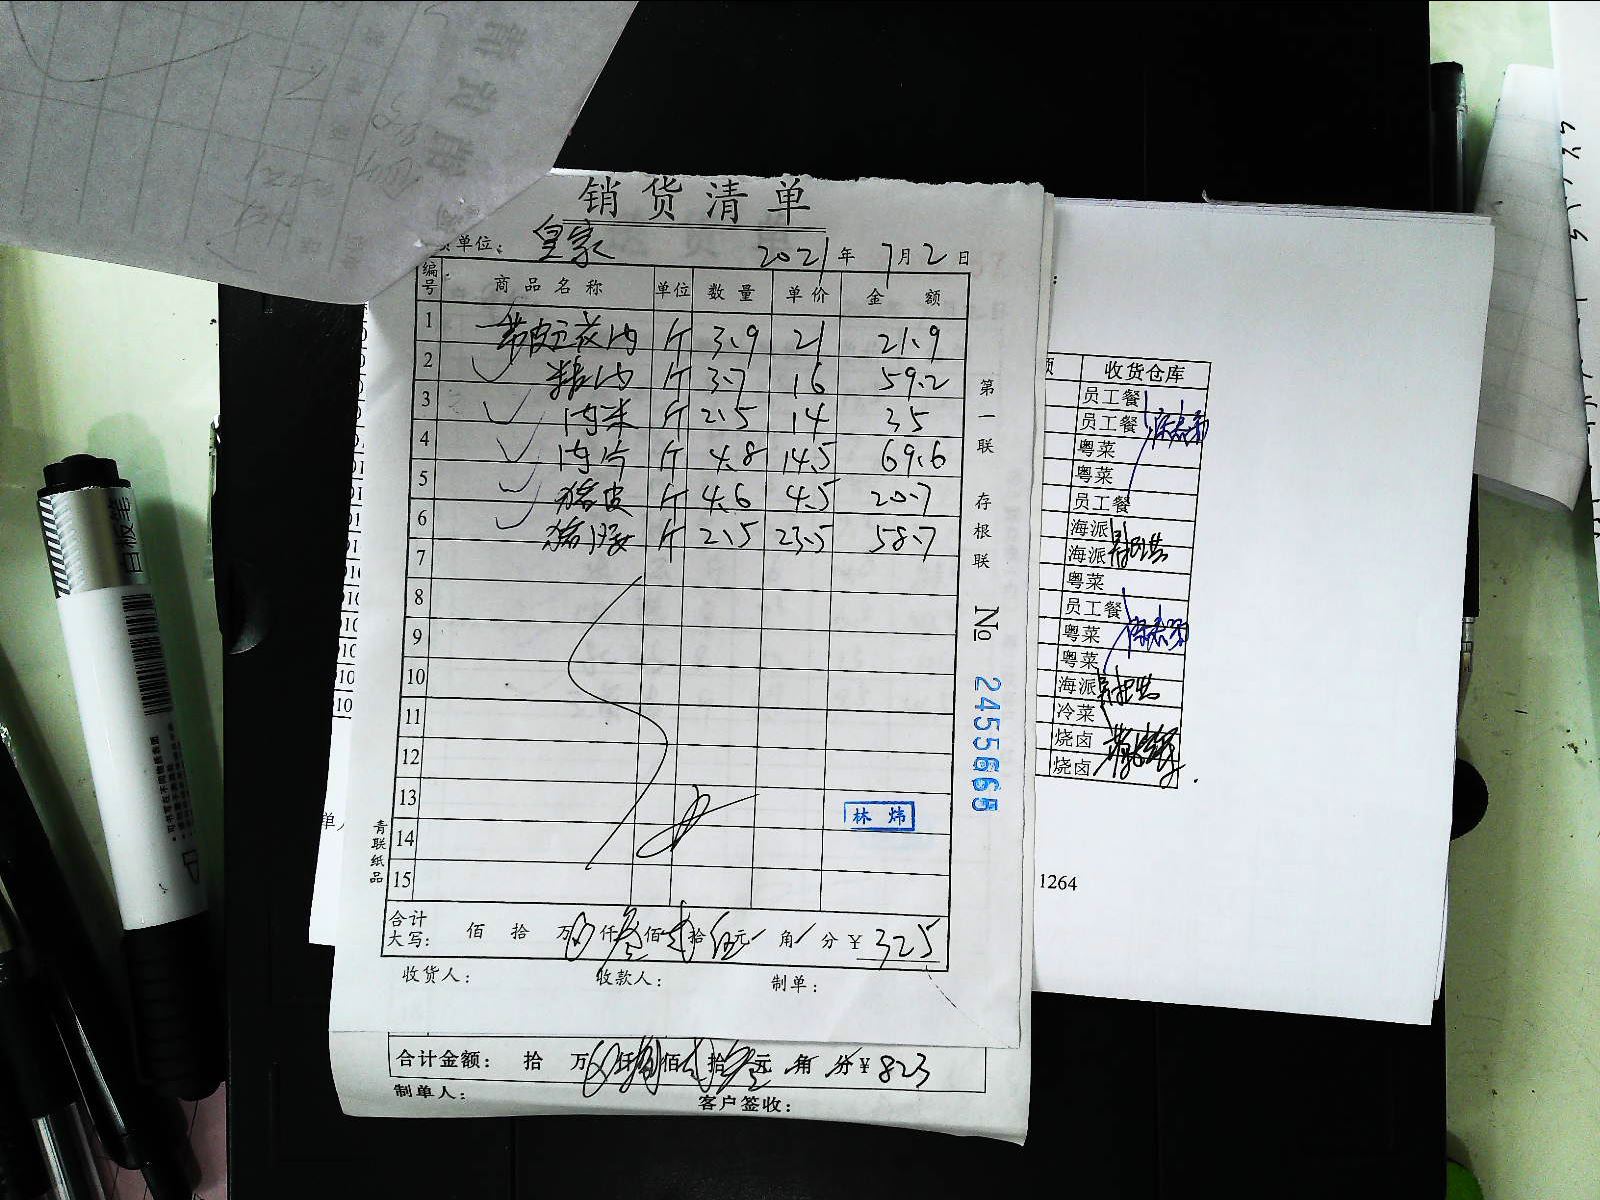 销货清单
单位: 皇家 2021年7月2日
编号 商品名称 单位 数量 单价 金额
1 带皮五花肉 斤 3.9 21 21.9
2 精肉 斤 3.7 16 59.2
3 肉米 斤 2.5 14 35
4 肉片 斤 4.8 14.5 69.6
5 猪皮 斤 4.6 4.5 20.7
6 猪腰 斤 2.5 23.5 58.7
7
8
9
10
11
12
13
14
15
林炜
合计大写: 佰 拾 万 仟叁佰贰拾伍元 角 分 ¥325
收货人: 收款人: 制单:
第一联 存根联
No 2455665
青联纸品
合计金额: 拾 万 仟捌佰贰拾叁元 角 分 ¥823
制单人:
客户签收:
收货仓库
员工餐
员工餐
粤菜
粤菜
员工餐
海派
海派
粤菜
员工餐
粤菜
粤菜
海派
冷菜
烧卤
烧卤
1264
白板笔